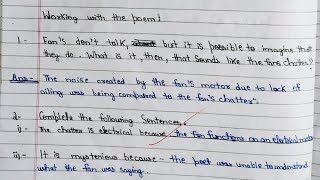 Working with the poem:
1. Fan's don't talk, but it is possible to imagine that
they do. What is it, then, that sounds like the fans chatter?
Ans:- The noise created by the fan's motor due to lack of
oiling was being compared to the fan's chatter.
2. Complete the following Sentences.
i) The chatter is electrical because the fan functions on an electrical motor
ii) It is mysterious because - the poet was unable to understand
what the fan was saying.